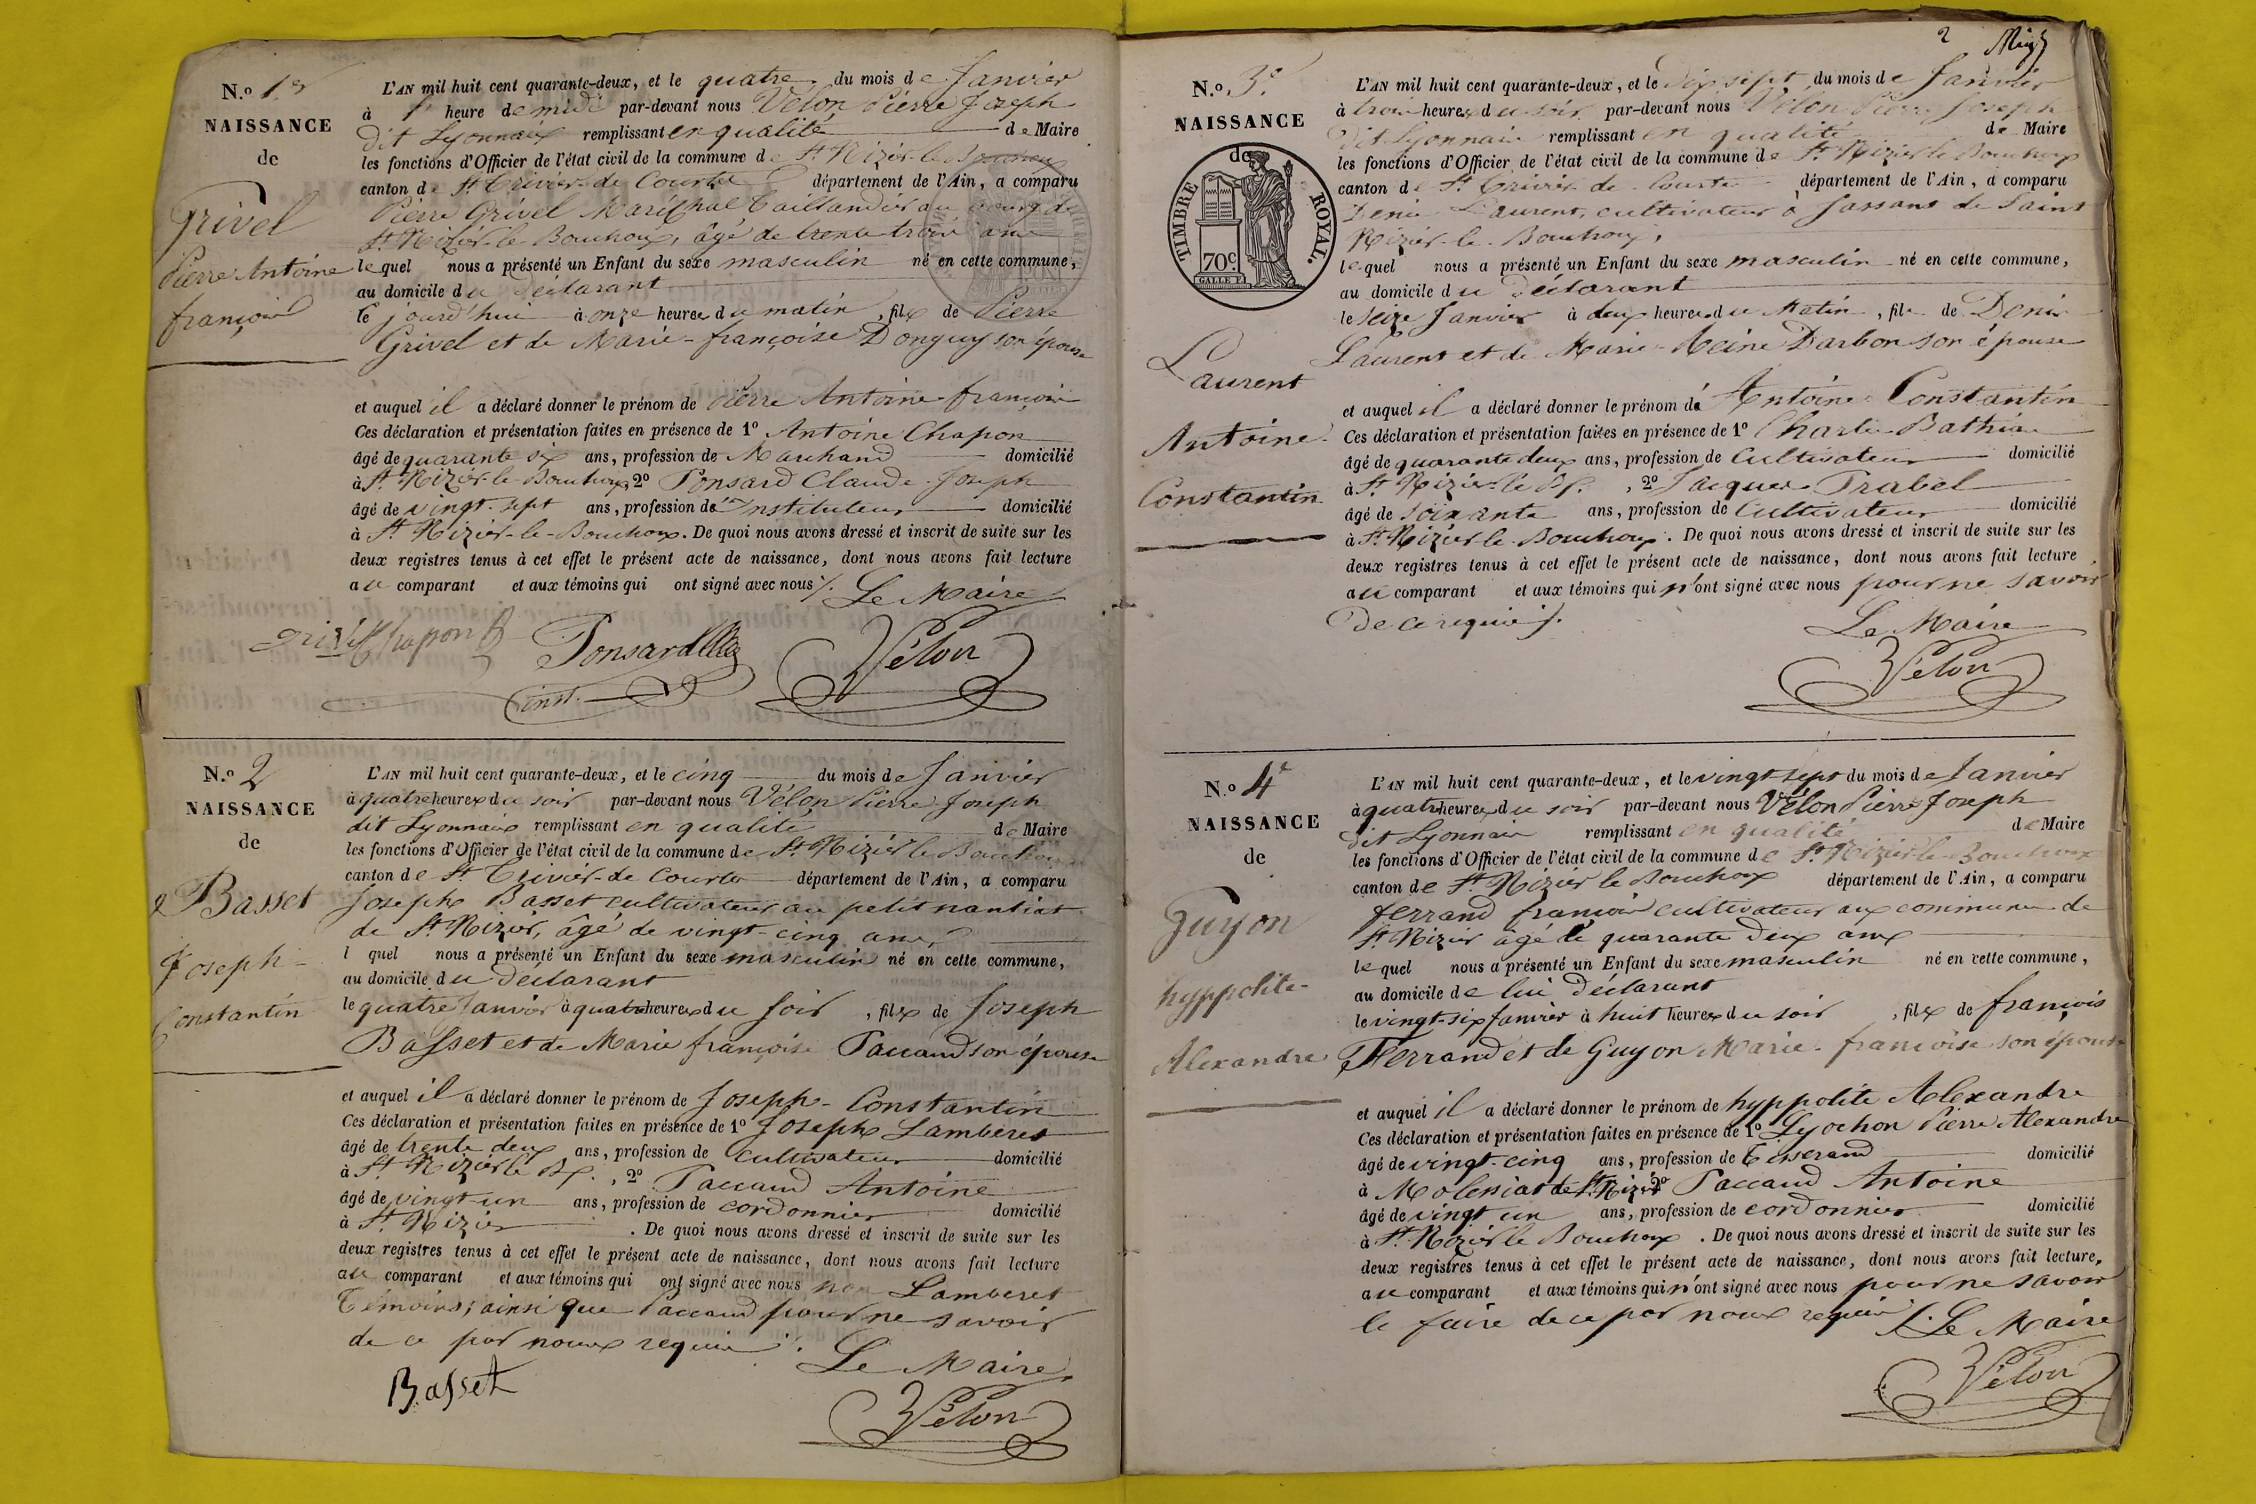 N.o 1er
NAISSANCE
de
Grivel
Pierre Antoine
françois
L'AN mil huit cent quarante-deux, et le quatre du mois de Janvier
à 1 heure de midi par-devant nous Vélon Pierre Joseph
dit Lyonnais remplissant en qualité de Maire
les fonctions d'Officier de l'état civil de la commune de St Nizier-le-Bouchoux
canton de St Trivier-de Courtes département de l'Ain, a comparu
Pierre Grivel Maréchal Taillandier au bourg de
St Nizier-le-Bouchoux, âgé de trente trois ans
lequel nous a présenté un Enfant du sexe masculin né en cette commune,
au domicile du déclarant
le jourd'hui à onze heures du matin, fils de Pierre
Grivel et de Marie-françoise Donguy son épouse
et auquel il a déclaré donner le prénom de Pierre Antoine françois
Ces déclaration et présentation faites en présence de 1o Antoine Chapon
âgé de quarante six ans, profession de Marchand domicilié
à St Nizier-le-Bouchoux, 2o Ponsard Claude-Joseph
âgé de vingt-sept ans, profession d'Instituteur domicilié
à St Nizier-le-Bouchoux. De quoi nous avons dressé et inscrit de suite sur les
deux registres tenus à cet effet le présent acte de naissance, dont nous avons fait lecture
au comparant et aux témoins qui ont signé avec nous ./.
Le Maire
Grivel Chapon Ponsard
inst.
Vélon
N.o 2
NAISSANCE
de
Basset
Joseph-
Constantin
L'AN mil huit cent quarante-deux, et le cinq du mois de Janvier
à quatre heures du soir par-devant nous Vélon Pierre Joseph
dit Lyonnais remplissant en qualité de Maire
les fonctions d'Officier de l'état civil de la commune de St Nizier le Bouchoux
canton de St Trivier-de Courtes département de l'Ain, a comparu
Joseph Basset cultivateur au petit nantiat
de St Nizier, âgé de vingt-cinq ans,
l quel nous a présenté un Enfant du sexe masculin né en cette commune,
au domicile du déclarant
le quatre Janvier à quatre heures du soir, fils de Joseph
Basset et de Marie françoise Paccaud son épouse
et auquel il a déclaré donner le prénom de Joseph-Constantin
Ces déclaration et présentation faites en présence de 1o Joseph Lamberet
âgé de trente deux ans, profession de Cultivateur domicilié
à St Nizier le Bx., 2o Paccaud Antoine
âgé de vingt-un ans, profession de cordonnier domicilié
à St Nizier. De quoi nous avons dressé et inscrit de suite sur les
deux registres tenus à cet effet le présent acte de naissance, dont nous avons fait lecture
au comparant et aux témoins qui ont signé avec nous non Lamberet
Témoins; ainsi que Paccaud pour ne savoir
de ce par nous requis ./.
Le Maire
Basset
Vélon
2
N.o 3e
NAISSANCE
de
TIMBRE ROYAL.
70c.
Laurent
Antoine-
Constantin
L'AN mil huit cent quarante-deux, et le dix sept du mois de Janvier
à trois heures du soir par-devant nous Vélon Pierre Joseph
dit Lyonnais remplissant en qualité de Maire
les fonctions d'Officier de l'état civil de la commune de St Nizier le Bouchoux
canton de St Trivier de Courtes département de l'Ain, a comparu
Denis Laurent, cultivateur à Jassans de Saint
Nizier-le-Bouchoux,
lequel nous a présenté un Enfant du sexe masculin né en cette commune,
au domicile du déclarant
le seize Janvier à deux heures du Matin, fils de Denis
Laurent et de Marie-Reine Darbon son épouse
et auquel il a déclaré donner le prénom de Antoine Constantin
Ces déclaration et présentation faites en présence de 1o Charles Bathias
âgé de quarante deux ans, profession de Cultivateur domicilié
à St Nizier-le Bx., 2o Jacques Trabel
âgé de soixante ans, profession de Cultivateur domicilié
à St Nizier-le-Bouchoux. De quoi nous avons dressé et inscrit de suite sur les
deux registres tenus à cet effet le présent acte de naissance, dont nous avons fait lecture
au comparant et aux témoins qui n'ont signé avec nous pour ne savoir
de ce requis ./.
Le Maire
Vélon
N.o 4e
NAISSANCE
de
Guyon
hyppolite-
Alexandre
L'AN mil huit cent quarante-deux, et le vingt sept du mois de Janvier
à quatre heures du soir par-devant nous Vélon Pierre Joseph
dit Lyonnais remplissant en qualité de Maire
les fonctions d'Officier de l'état civil de la commune de St Nizier-le-Bouchoux
canton de St Nizier le Bouchoux département de l'Ain, a comparu
ferrand françois cultivateur aux communes de
St Nizier âgé de quarante deux ans
lequel nous a présenté un Enfant du sexe masculin né en cette commune,
au domicile de lui déclarant
le vingt-six Janvier à huit heures du soir, fils de françois
Ferrand et de Guyon Marie-françoise son épouse
et auquel il a déclaré donner le prénom de hyppolite Alexandre
Ces déclaration et présentation faites en présence de 1o Lyochon Pierre Alexandre
âgé de vingt-cinq ans, profession de Tisserand domicilié
à Molessiat de St Nizier 2o Paccaud Antoine
âgé de vingt un ans, profession de cordonnier domicilié
à St Nizier le Bouchoux. De quoi nous avons dressé et inscrit de suite sur les
deux registres tenus à cet effet le présent acte de naissance, dont nous avons fait lecture,
au comparant et aux témoins qui n'ont signé avec nous pour ne savoir
le faire de ce par nous requis ./. Le Maire
Vélon